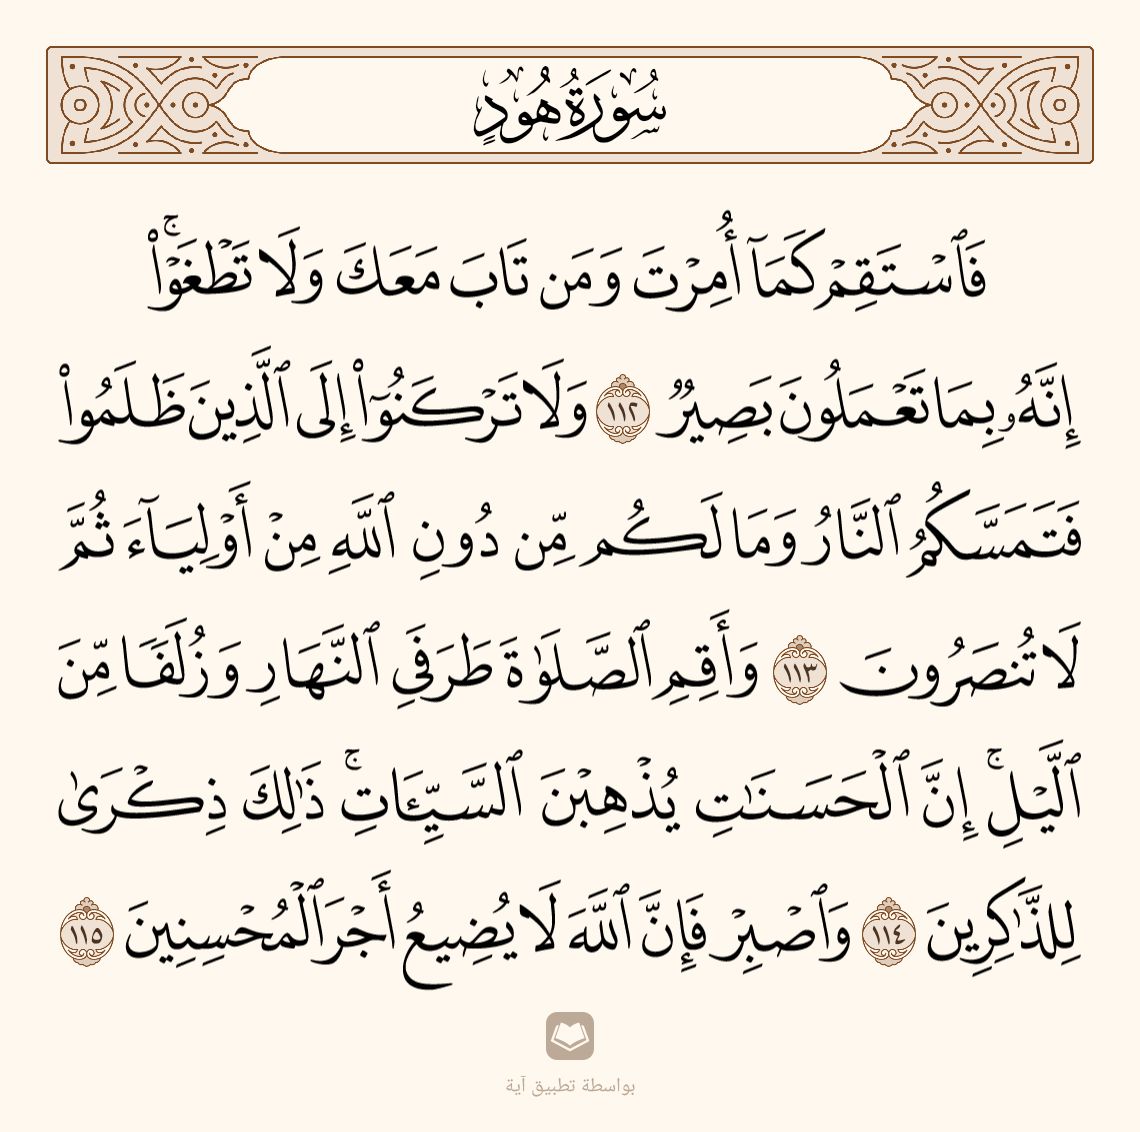 سُورَةُ هُودٍ
فَٱسۡتَقِمۡ كَمَآ أُمِرۡتَ وَمَن تَابَ مَعَكَ وَلَا تَطۡغَوۡاْۚ
إِنَّهُۥ بِمَا تَعۡمَلُونَ بَصِيرٞ ١١٢ وَلَا تَرۡكَنُوٓاْ إِلَى ٱلَّذِينَ ظَلَمُواْ
فَتَمَسَّكُمُ ٱلنَّارُ وَمَا لَكُم مِّن دُونِ ٱللَّهِ مِنۡ أَوۡلِيَآءَ ثُمَّ
لَا تُنصَرُونَ ١١٣ وَأَقِمِ ٱلصَّلَوٰةَ طَرَفَيِ ٱلنَّهَارِ وَزُلَفٗا مِّنَ
ٱلَّيۡلِۚ إِنَّ ٱلۡحَسَنَٰتِ يُذۡهِبۡنَ ٱلسَّيِّـَٔاتِۚ ذَٰلِكَ ذِكۡرَىٰ
لِلذَّٰكِرِينَ ١١٤ وَٱصۡبِرۡ فَإِنَّ ٱللَّهَ لَا يُضِيعُ أَجۡرَ ٱلۡمُحۡسِنِينَ ١١٥
بواسطة تطبيق آية